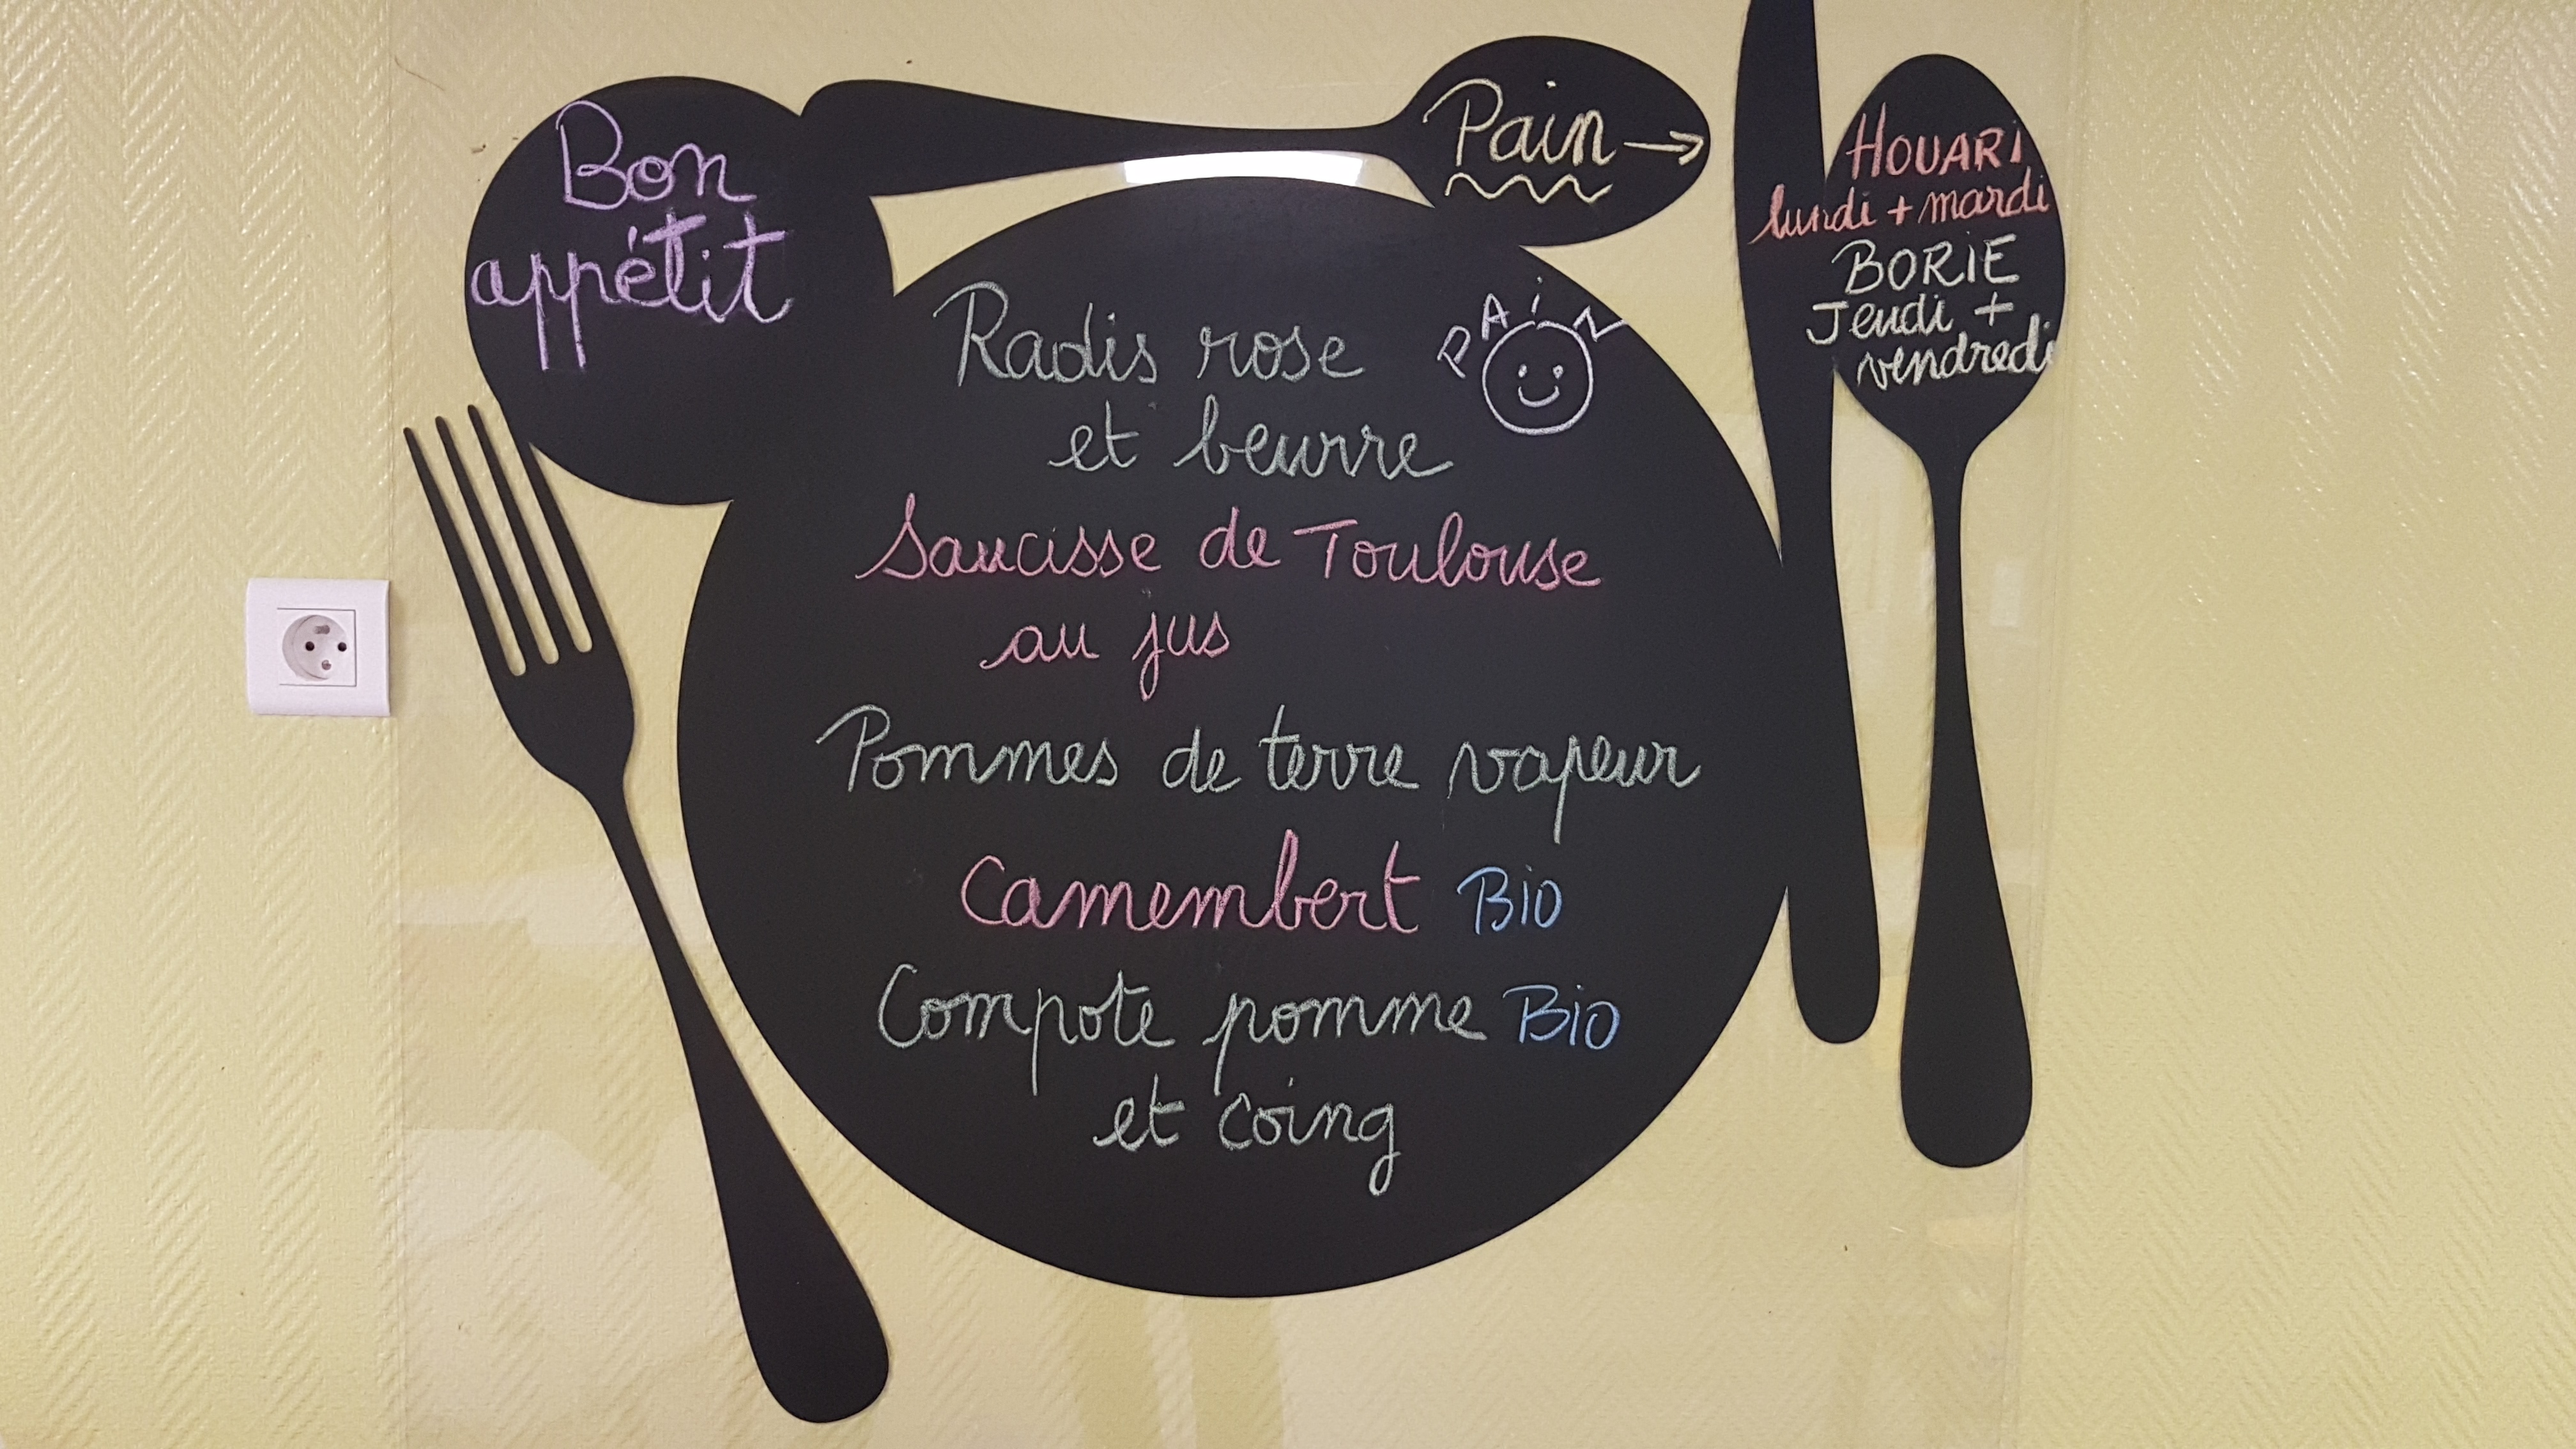 Bon
appétit
Pain →
HOUARI
lundi + mardi
BORIE
Jeudi +
vendredi
PAIN
Radis rose
et beurre
Saucisse de Toulouse
au jus
Pommes de terre vapeur
Camembert Bio
Compote pomme Bio
et coing